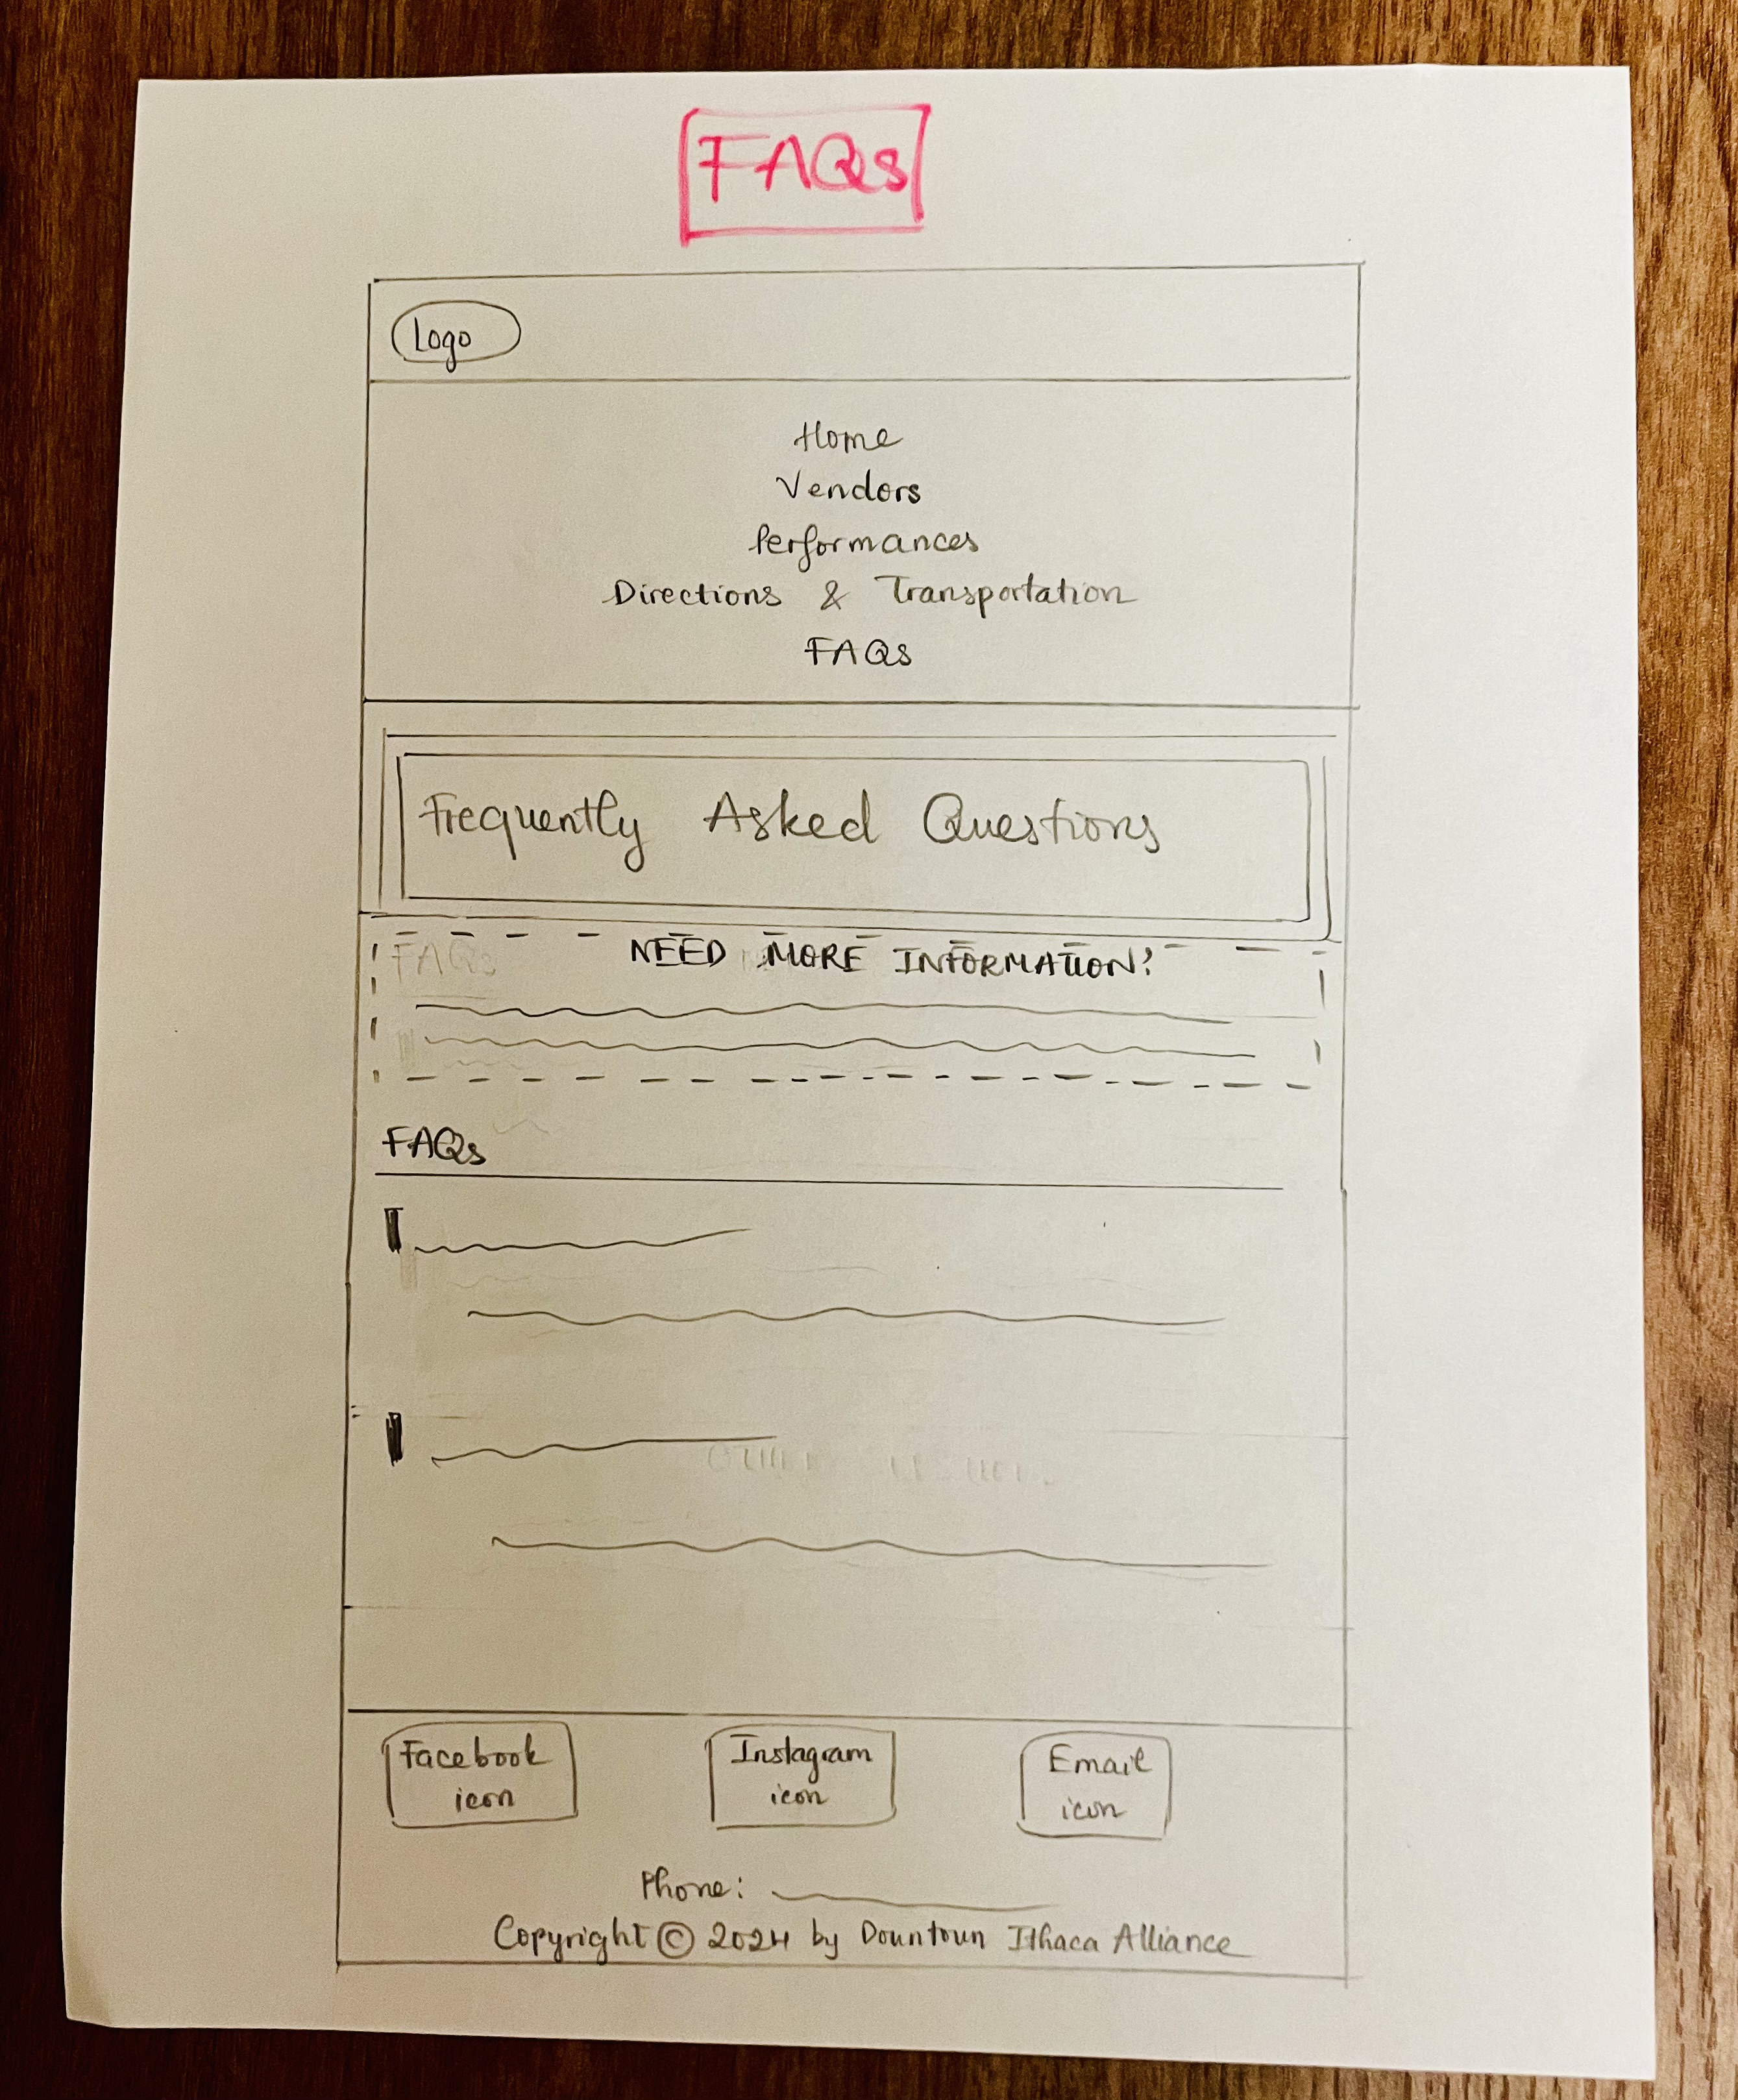 FAQs
Logo
Home
Vendors
Performances
Directions & Transportation
FAQs
Frequently Asked Questions
FAQs
NEED MORE INFORMATION?
FAQs
Facebook
icon
Instagram
icon
Email
icon
Phone:
Copyright © 2024 by Downtown Ithaca Alliance